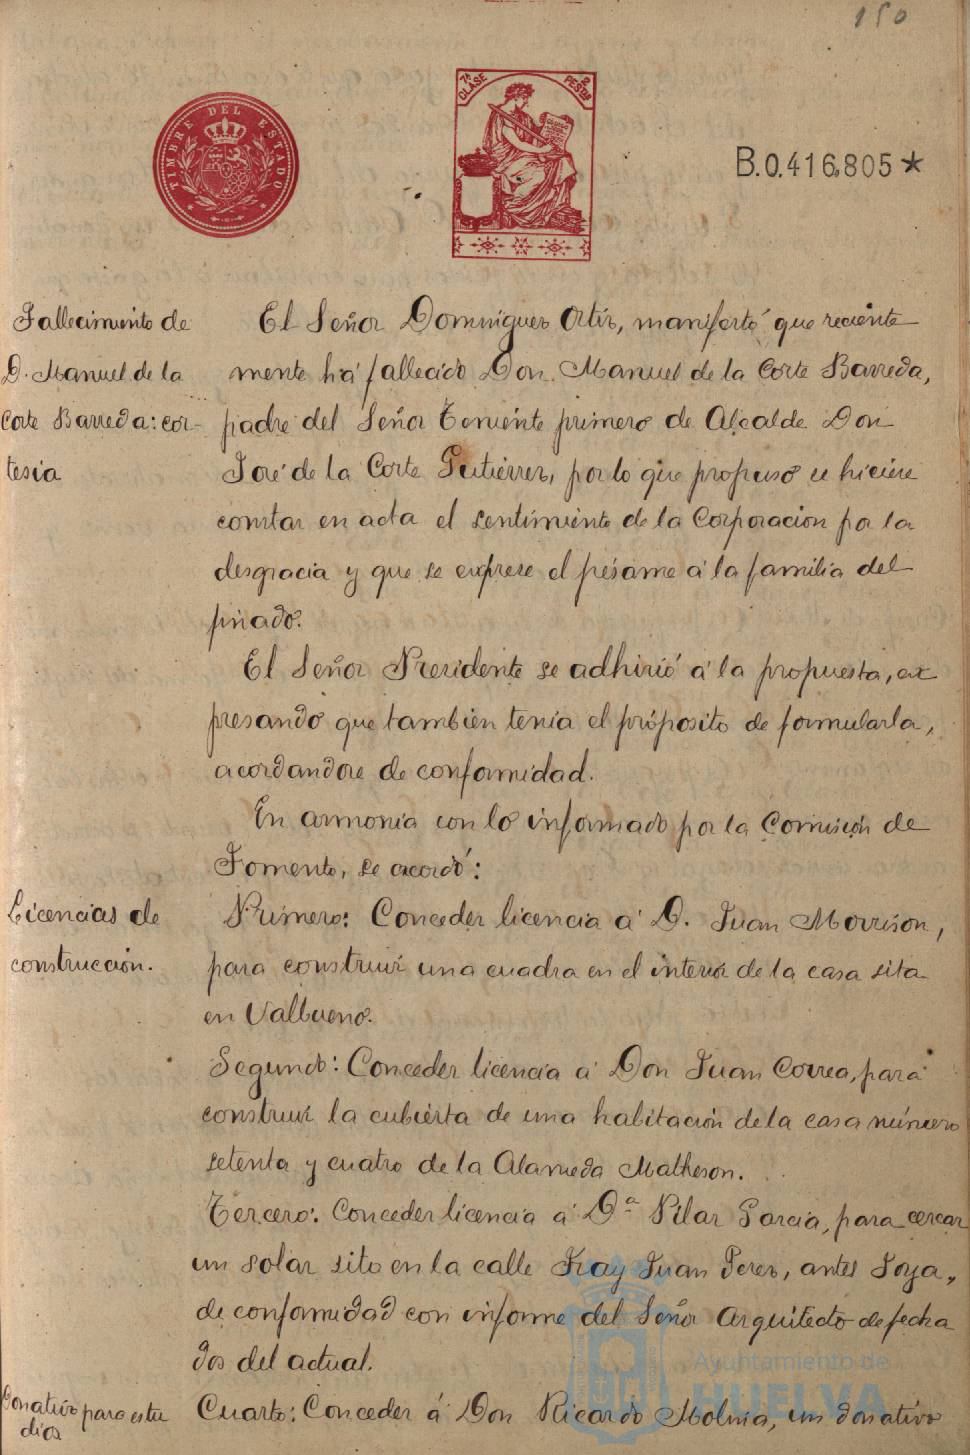 150
TIMBRE DEL ESTADO
7ª CLASE
2 PESTAS
B.0.416.805 *
Fallecimiento de
D. Manuel de la
Corte Barreda: cor-
tesia
El Señor Domínguez Ortiz, manifestó que reciente
mente há fallecido Don Manuel de la Corte Barreda,
padre del Señor Teniente primero de Alcalde Don
José de la Corte Gutiérrez, por lo que propuso se hiciese
constar en acta el sentimiento de la Corporacion por la
desgracia y que se exprese el pésame á la familia del
finado.
El Señor Presidente se adhirió á la propuesta, ex
presando que tambien tenia el própósito de formularla,
acordandose de conformidad.
En armonia con lo informado por la Comisión de
Fomento, se acordó:
Licencias de
construcción.
Primero: Conceder licencia á D. Juan Morrison,
para construir una cuadra en el interior de la casa sita
en Valbueno.
Segundo: Conceder licencia á Don Juan Correa, para
construir la cubierta de una habitación de la casa número
setenta y cuatro de la Alameda Matheson.
Tercero: Conceder licencia á Dª Pilar Garcia, para cercar
un solar sito en la calle Fray Juan Perez, antes Joya,
de conformidad con informe del Señor Arquitecto de fecha
dos del actual.
Donativo para estu
dios
Cuarto: Conceder á Don Ricardo Molina, un donativo
Ayuntamiento de
HUELVA